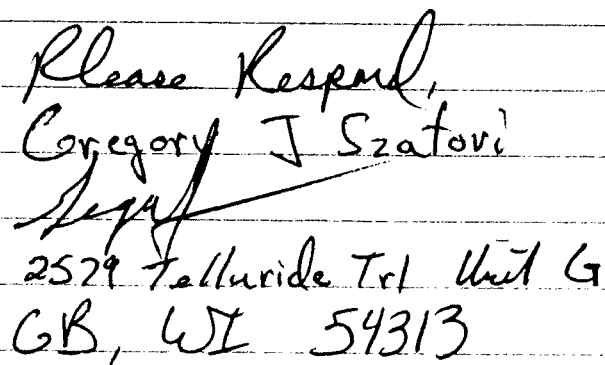 Please Respond,
Gregory J Szatori
2579 Telluride Trl Unit G
GB, WI 54313